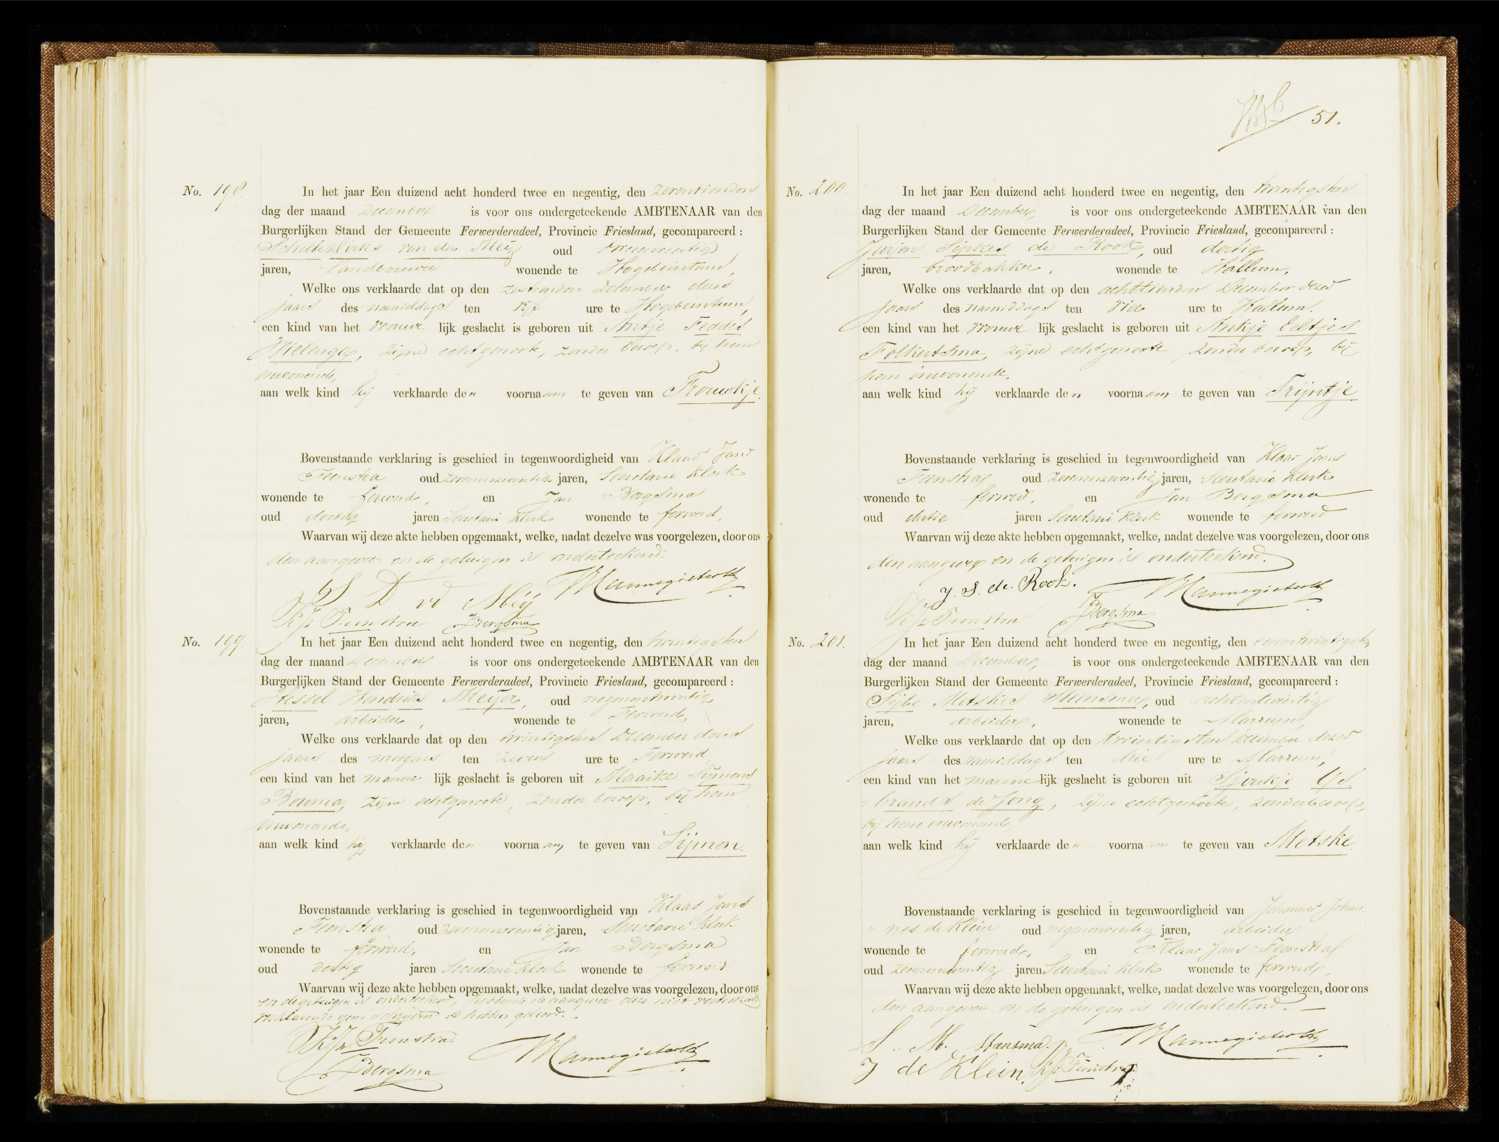 51.
No. 198 In het jaar Een duizend acht honderd twee en negentig, den zeventienden
dag der maand December is voor ons ondergeteekende AMBTENAAR van den
Burgerlijken Stand der Gemeente Ferwerderadeel, Provincie Friesland, gecompareerd:
van der Meij oud
jaren, wonende te Hogebeintum,
Welke ons verklaarde dat op den December dezes
jaars des namiddags ten vijf ure te Hogebeintum,
een kind van het vrouwe lijk geslacht is geboren uit Antje Feddes
zijne echtgenoote, zonder beroep, bij hem
inwonende,
aan welk kind hij verklaarde den voornaam te geven van Trouwkje.
Bovenstaande verklaring is geschied in tegenwoordigheid van Klaas Jans
Feenstra oud zevenentwintig jaren, Secretarie klerk
wonende te Ferwerd, en Jan Bergsma
oud dertig jaren Secretarie klerk wonende te Ferwerd,
Waarvan wij deze akte hebben opgemaakt, welke, nadat dezelve was voorgelezen, door ons
den aangever en de getuigen is onderteekend.
S D vd Meij Mannegieterth
K Jz Feenstra JBergsma
No. 199 In het jaar Een duizend acht honderd twee en negentig, den twintigsten
dag der maand December is voor ons ondergeteekende AMBTENAAR van den
Burgerlijken Stand der Gemeente Ferwerderadeel, Provincie Friesland, gecompareerd:
Jessel Hendriks Meijer, oud negenentwintig
jaren, arbeider, wonende te Ferwerd,
Welke ons verklaarde dat op den twintigsten December dezes
jaars des morgens ten zeven ure te Ferwerd
een kind van het manne lijk geslacht is geboren uit Maaike Sijmens
Bouma, zijne echtgenoote, zonder beroep, bij hem
inwonende,
aan welk kind hij verklaarde den voornaam te geven van Sijmen
Bovenstaande verklaring is geschied in tegenwoordigheid van Klaas Jans
Feenstra oud zevenentwintig jaren, Secretarie klerk
wonende te Ferwerd, en Jan Bergsma
oud dertig jaren Secretarie klerk wonende te Ferwerd
Waarvan wij deze akte hebben opgemaakt, welke, nadat dezelve was voorgelezen, door ons
en de getuigen is onderteekend,
K Jz Feenstra Mannegieterth
JBergsma
No. 200 In het jaar Een duizend acht honderd twee en negentig, den twintigsten
dag der maand December is voor ons ondergeteekende AMBTENAAR van den
Burgerlijken Stand der Gemeente Ferwerderadeel, Provincie Friesland, gecompareerd:
Jurjen Sipkes de Rook, oud dertig
jaren, broodbakker, wonende te Hallum,
Welke ons verklaarde dat op den achttienden December dezes
jaars des namiddags ten vier ure te Hallum
een kind van het vrouwe lijk geslacht is geboren uit Antje Eeltjes
Folkertsma, zijne echtgenoote zonder beroep, bij
hem inwonende.
aan welk kind hij verklaarde den voornaam te geven van Trijntje.
Bovenstaande verklaring is geschied in tegenwoordigheid van Klaas Jans
Feenstra oud zevenentwintig jaren, Secretarie klerk
wonende te Ferwerd, en Jan Bergsma
oud dertig jaren Secretarie klerk wonende te Ferwerd
Waarvan wij deze akte hebben opgemaakt, welke, nadat dezelve was voorgelezen, door ons
den aangever en de getuigen is onderteekend.
J. S. de Rook. Mannegieterth
K Jz Feenstra JBergsma
No. 201. In het jaar Een duizend acht honderd twee en negentig, den eenentwintigsten
dag der maand December is voor ons ondergeteekende AMBTENAAR van den
Burgerlijken Stand der Gemeente Ferwerderadeel, Provincie Friesland, gecompareerd:
Sijbe Metskes Hiensma, oud achtentwintig
jaren, arbeider, wonende te Marrum,
Welke ons verklaarde dat op den twintigsten December dezes
jaars des namiddags ten drie ure te Marrum,
een kind van het manne lijk geslacht is geboren uit Sjoukje IJs
brands de Jong, zijne echtgenoote, zonder beroep,
bij hem inwonende
aan welk kind hij verklaarde den voornaam te geven van Metske
Bovenstaande verklaring is geschied in tegenwoordigheid van Johannes Johan
nes de Klein oud negenentwintig jaren, arbeider
wonende te Ferwerd, en Klaas Jans Feenstra
oud zevenentwintig jaren Secretarie klerk wonende te Ferwerd,
Waarvan wij deze akte hebben opgemaakt, welke, nadat dezelve was voorgelezen, door ons
den aangever en de getuigen is onderteekend.
S. M. Hiensma. Mannegieterth
J de Klein. K Jz Feenstra